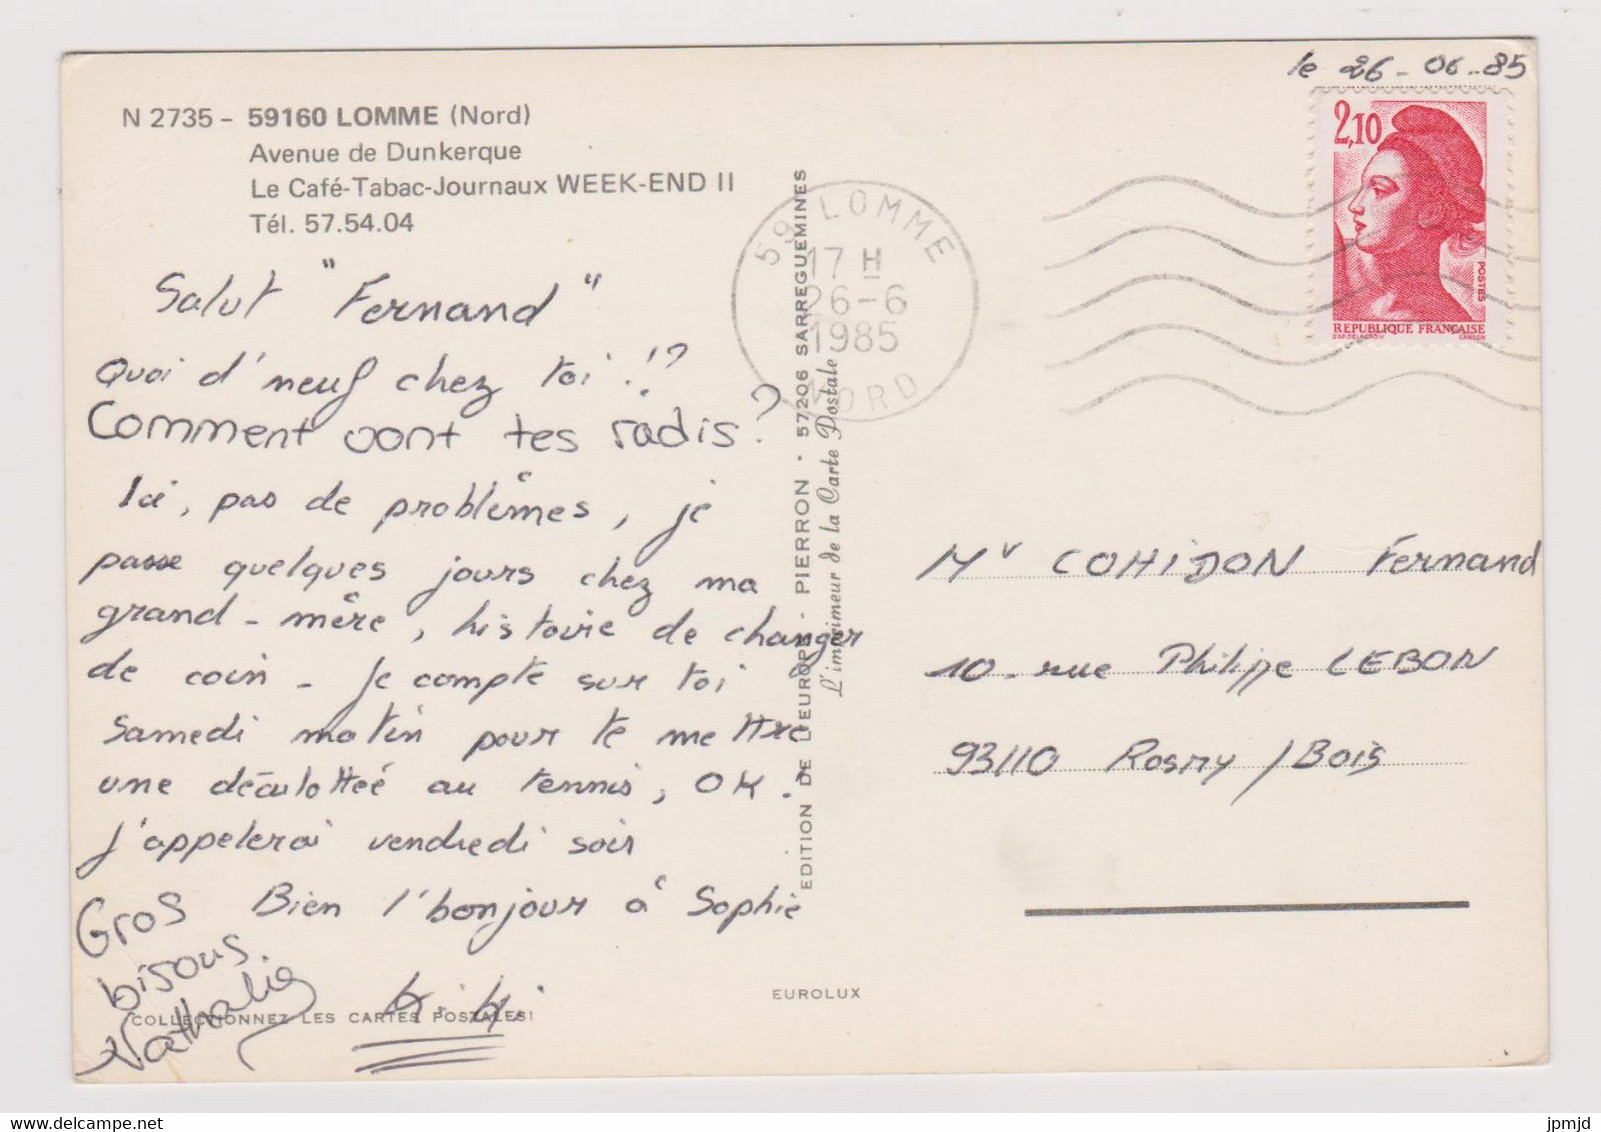 le 26-06-85
N 2735 - 59160 LOMME (Nord)
Avenue de Dunkerque
Le Café-Tabac-Journaux WEEK-END II
Tél. 57.54.04
Salut "Fernand"
Quoi d'neuf chez toi !?
Comment vont tes radis?
Ici, pas de problèmes, je
passe quelques jours chez ma
grand-mère, histoire de changer
de coin - Je compte sur toi
Samedi matin pour te mettre
une déculottée au tennis, OK!
J'appelerai vendredi soir
Bien l'bonjour à Sophie
Gros
bisous
Nathalie
COLLECTIONNEZ LES CARTES POSTALES!
EUROLUX
EDITION DE L'EUROPE - PIERRON - 57206 SARREGUEMINES
L'imprimeur de la Carte Postale
59 LOMME
17 H
26-6
1985
NORD
2,10
POSTES
REPUBLIQUE FRANÇAISE
D'AP. DELACROIX GANDON
Mr COHIDON Fernand
10 - rue Philippe LEBON
93110 Rosny/Bois
jpmjd
delcampe.net